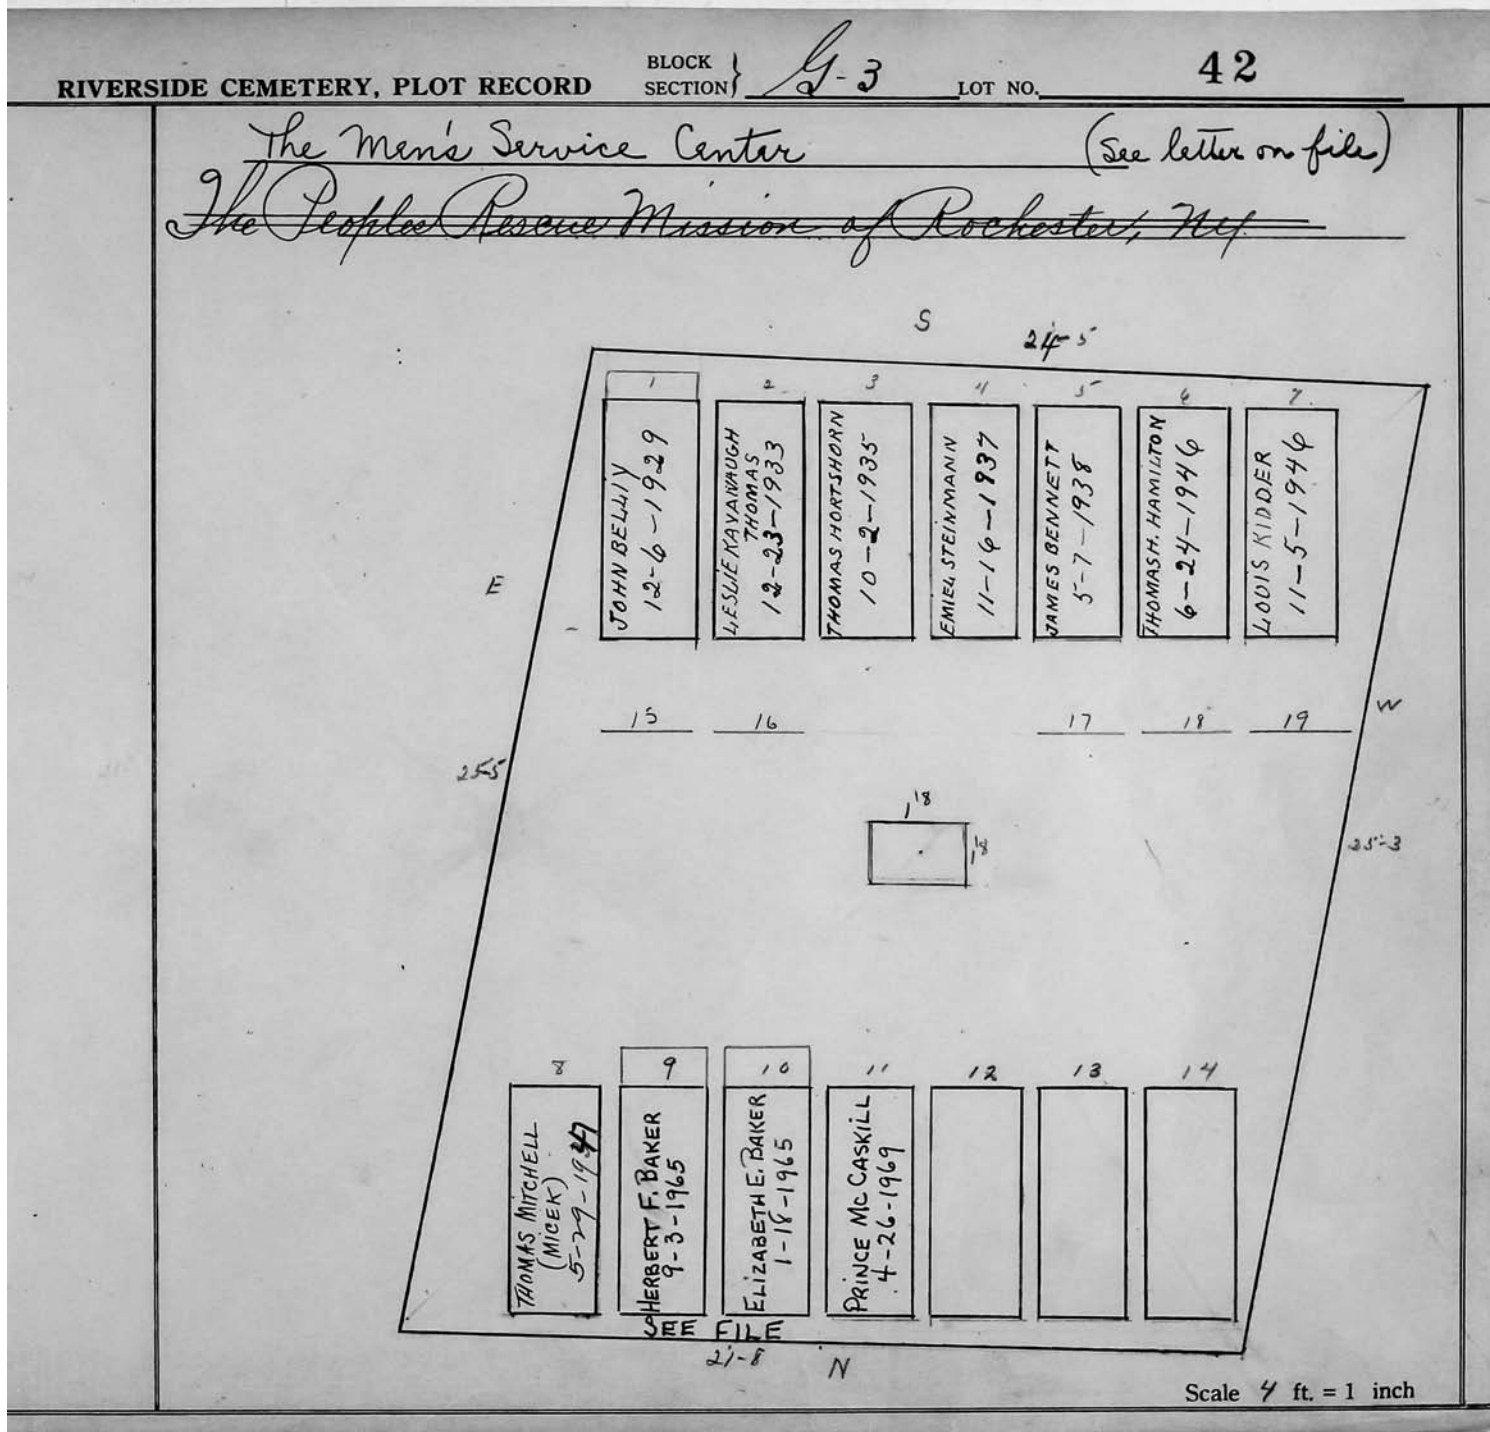 RIVERSIDE CEMETERY, PLOT RECORD BLOCK SECTION} G-3 LOT NO. 42
The Men's Service Center (see letter on file)
The Peoples Rescue Mission of Rochester, NY
S
24-5
1 2 3 4 5 6 7
JOHN BELLIY
12-6-1929
LESLIE KAVANAUGH
THOMAS
12-23-1933
THOMAS HORTSHORN
10-2-1935
EMIEL STEINMANN
11-16-1937
JAMES BENNETT
5-7-1938
THOMAS H. HAMILTON
6-24-1946
LOUIS KIDDER
11-5-1946
E
W
15 16 17 18 19
25-5
1 18
1 8
25-3
8 9 10 11 12 13 14
THOMAS MITCHELL
(MICEK)
5-29-1947
HERBERT F. BAKER
9-3-1965
ELIZABETH E. BAKER
1-18-1965
PRINCE MC CASKILL
4-26-1969
SEE FILE
21-8
N
Scale 4 ft. = 1 inch